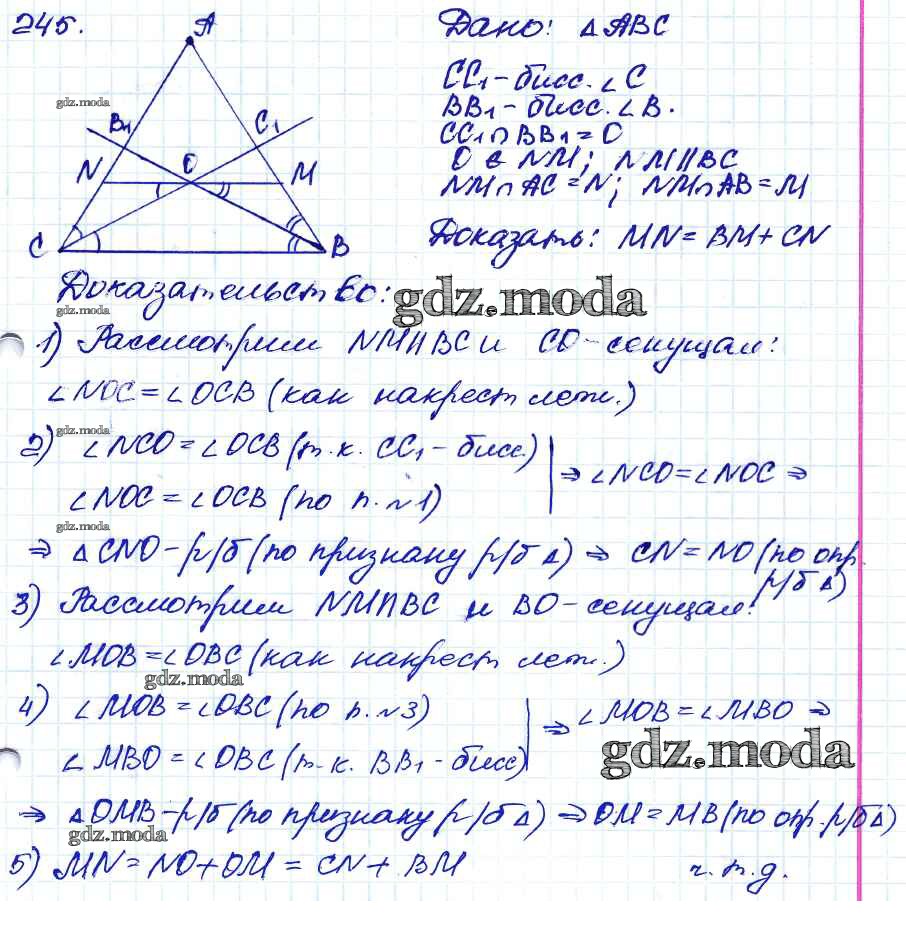 245.
A
Дано: △ABC
CC₁ - бисс. ∠C
gdz.moda
BB₁ - бисс. ∠B.
B₁
C₁
CC₁ ∩ BB₁ = O
O
O ∈ NM; NM || BC
N
M
NM ∩ AC = N; NM ∩ AB = M
C
B
Доказать: MN = BM + CN
Доказательство:
gdz.moda
gdz.moda
1) Рассмотрим NM || BC и CO - секущая:
∠NOC = ∠OCB (как накрест леж.)
gdz.moda
2) ∠NCO = ∠OCB (т.к. CC₁ - бисс.)
∠NOC = ∠OCB (по п.№1)
⇒ ∠NCO = ∠NOC ⇒
gdz.moda
⇒ △CNO - р/б (по признаку р/б △) ⇒ CN = NO (по опр.
р/б △)
3) Рассмотрим NM || BC и BO - секущая:
∠MOB = ∠OBC (как накрест леж.)
gdz.moda
4) ∠MOB = ∠OBC (по п.№3)
∠MBO = ∠OBC (т.к. BB₁ - бисс)
⇒ ∠MOB = ∠MBO ⇒
gdz.moda
⇒ △OMB - р/б (по признаку р/б △) ⇒ OM = MB (по опр. р/б △)
gdz.moda
5) MN = NO + OM = CN + BM
ч.т.д.